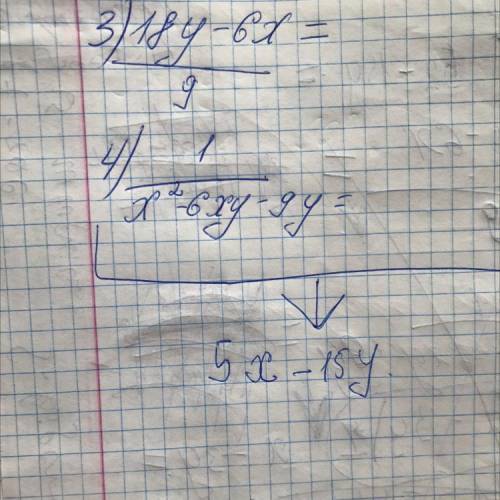 3) 18y - 6x =
9
4) 1
x² - 6xy - 9y =
5x - 15y.